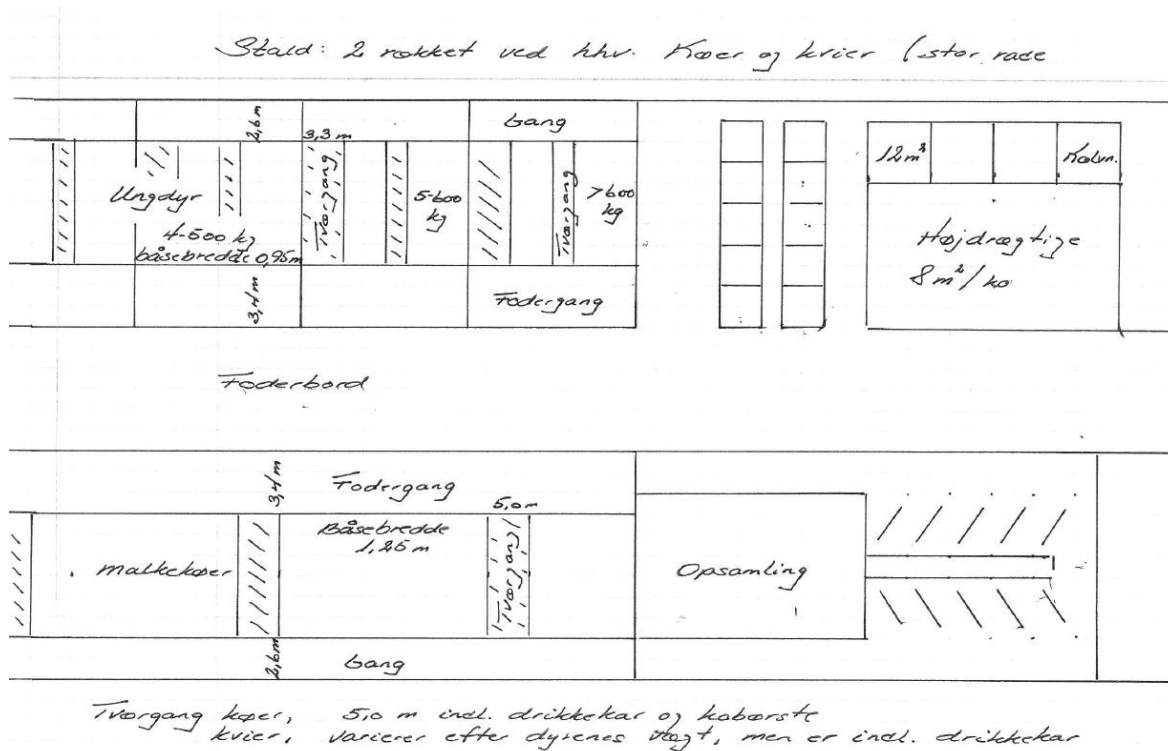 Stald: 2 rækket ved hhv. Køer og kvier (stor race
2,6m
3,3 m
Gang
Ungdyr
4-500 kg
båsebredde 0,95m
Tværgang
5-600
kg
Tværgang
>600
kg
3,4m
Fodergang
12 m²
Kælvn.
Højdrægtige
8 m² / ko
Foderbord
3,4m
Fodergang
Båsebredde
1,25 m
5,0 m
Malkekøer
Tværgang
Opsamling
2,6m
Gang
Tværgang køer, 5,0 m incl. drikkekar og kobørste
kvier, varierer efter dyrenes vægt, men er incl. drikkekar